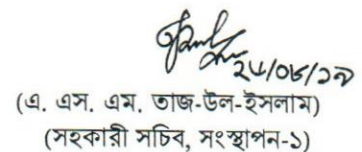 ২৮/০৮/১৯
(এ. এস. এম. তাজ-উল-ইসলাম)
(সহকারী সচিব, সংস্থাপন-১)